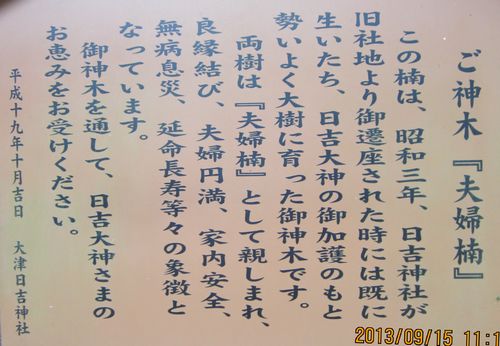 ご神木『夫婦楠』
この楠は、昭和三年、日吉神社が
旧社地より御遷座された時には既に
生いたち、日吉大神の御加護のもと
勢いよく大樹に育った御神木です。
両樹は『夫婦楠』として親しまれ、
良縁結び、夫婦円満、家内安全、
無病息災、延命長寿等々の象徴と
なっています。
御神木を通して、日吉大神さまの
お恵みをお受けください。
平成十九年十月吉日 大津日吉神社
2013/09/15 11:1